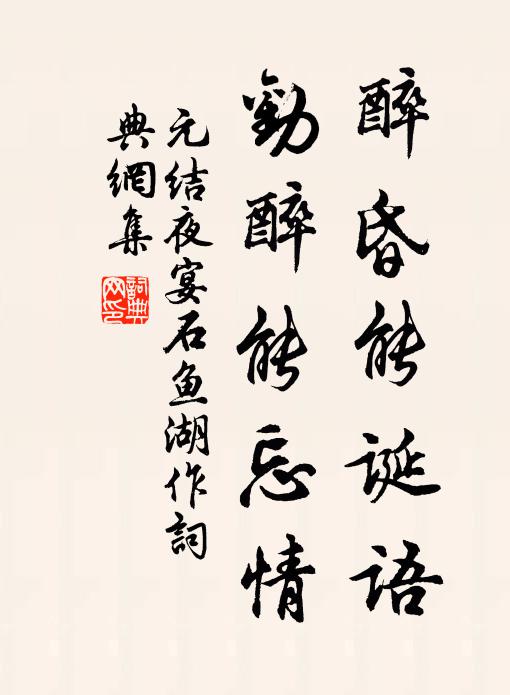 醉昏能诞语
劝醉能忘情
元结夜宴石鱼湖作詞
典網集
詞典
网印